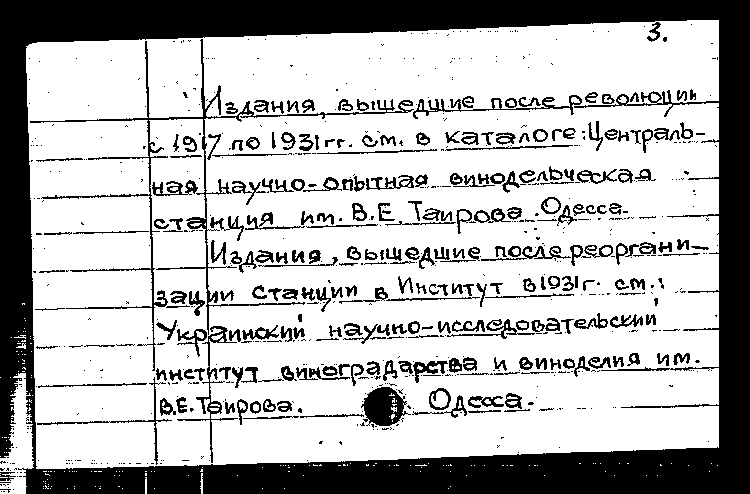 3.
Издания, вышедшие после революции
с 1917 по 1931 гг. см. в каталоге: Централь-
ная научно-опытная винодельческая
станция им. В.Е. Таирова. Одесса.
Издания, вышедшие после реоргани-
зации станции в Институт в 1931 г. см.:
Украинский научно-исследовательский
институт виноградарства и виноделия им.
В.Е. Таирова. Одесса.